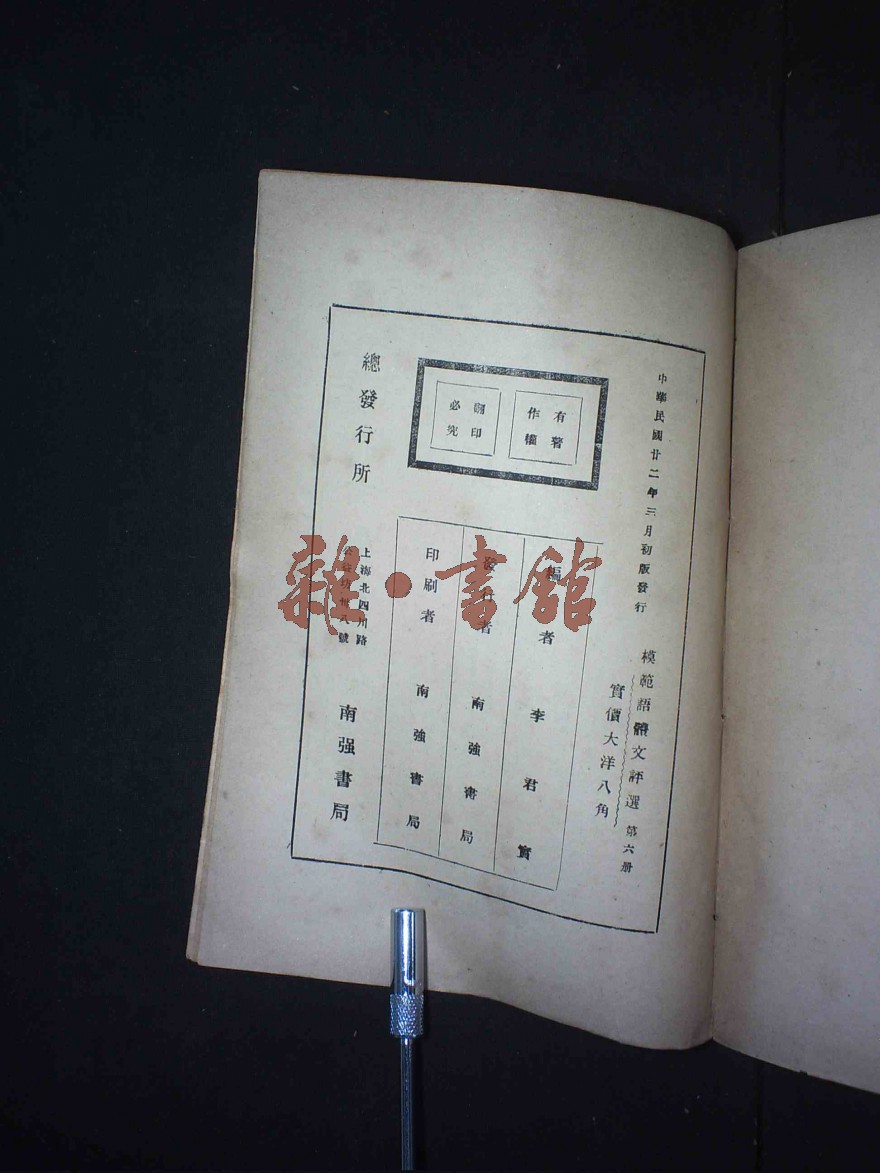 中華民國廿二年三月初版發行
模範語體文評選 第六册
實價大洋八角
有著作權
翻印必究
編者 李君實
發行者 南強書局
印刷者 南強書局
總發行所
上海北四川路
公益坊卅八號
南强書局
雜·書館